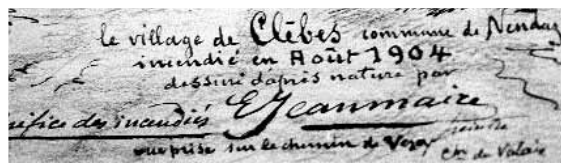 le village de Clèbes commune de Nendaz
incendié en Août 1904
dessiné d'après nature par
des incendiés E. Jeanmaire
peintre
vue prise sur le chemin de Veysonnaz